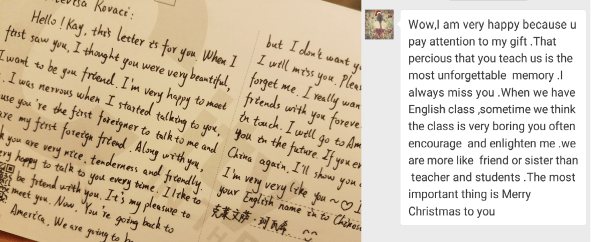 Kovaci:
Hello! Kay, this letter is for you. When I
first saw you, I thought you were very beautiful,
I want to be you friend. I'm very happy to meet
. I was nervous when I started talking to you,
you're the first foreigner to talk to me and
are my first foreign friend. Along with you,
you are very nice, tenderness and friendly.
very happy to talk to you every time. I like to
be friend with you. It's my pleasure to
meet you. Now. You're going back to
America. We are going to
but I don't want
I will miss you.
forget me. I really
friends with you
in touch. I will go to
you in the future. If you
China again. I'll show you
I'm very very like you ~ ♡
your English name in to Chinese
克莱文萨·
Wow,I am very happy because u
pay attention to my gift .That
percious that you teach us is the
most unforgettable memory .I
always miss you .When we have
English class ,sometime we think
the class is very boring you often
encourage and enlighten me .we
are more like friend or sister than
teacher and students .The most
important thing is Merry
Christmas to you